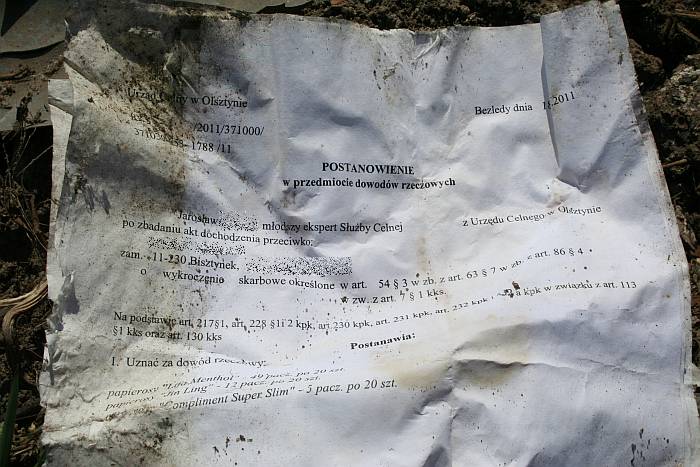 Urząd Celny w Olsztynie
Bezledy dnia .2011
/2011/371000/
1788 /11
POSTANOWIENIE
w przedmiocie dowodów rzeczowych
Jarosław młodszy ekspert Służby Celnej
z Urzędu Celnego w Olsztynie
po zbadaniu akt dochodzenia przeciwko:
zam. 11-230 Bisztynek,
o wykroczenie skarbowe określone w art. 54 § 3 w zb. z art. 63 § 7 w zb. z art. 86 § 4
w zw. z art. 7 § 1 kks.
Na podstawie art. 217§1, art. 228 §1i 2 kpk, art.230 kpk, art. 231 kpk, art. 232 kpk i kpk w związku z art. 113
§1 kks oraz art. 130 kks
Postanawia:
1. Uznać za dowód rzeczowy:
papierosy Menthol" - pacz. po 20 szt.
papierosy "Jin Ling" - 12 pacz. po 20 szt.
"Compliment Super Slim" - 5 pacz. po 20 szt.